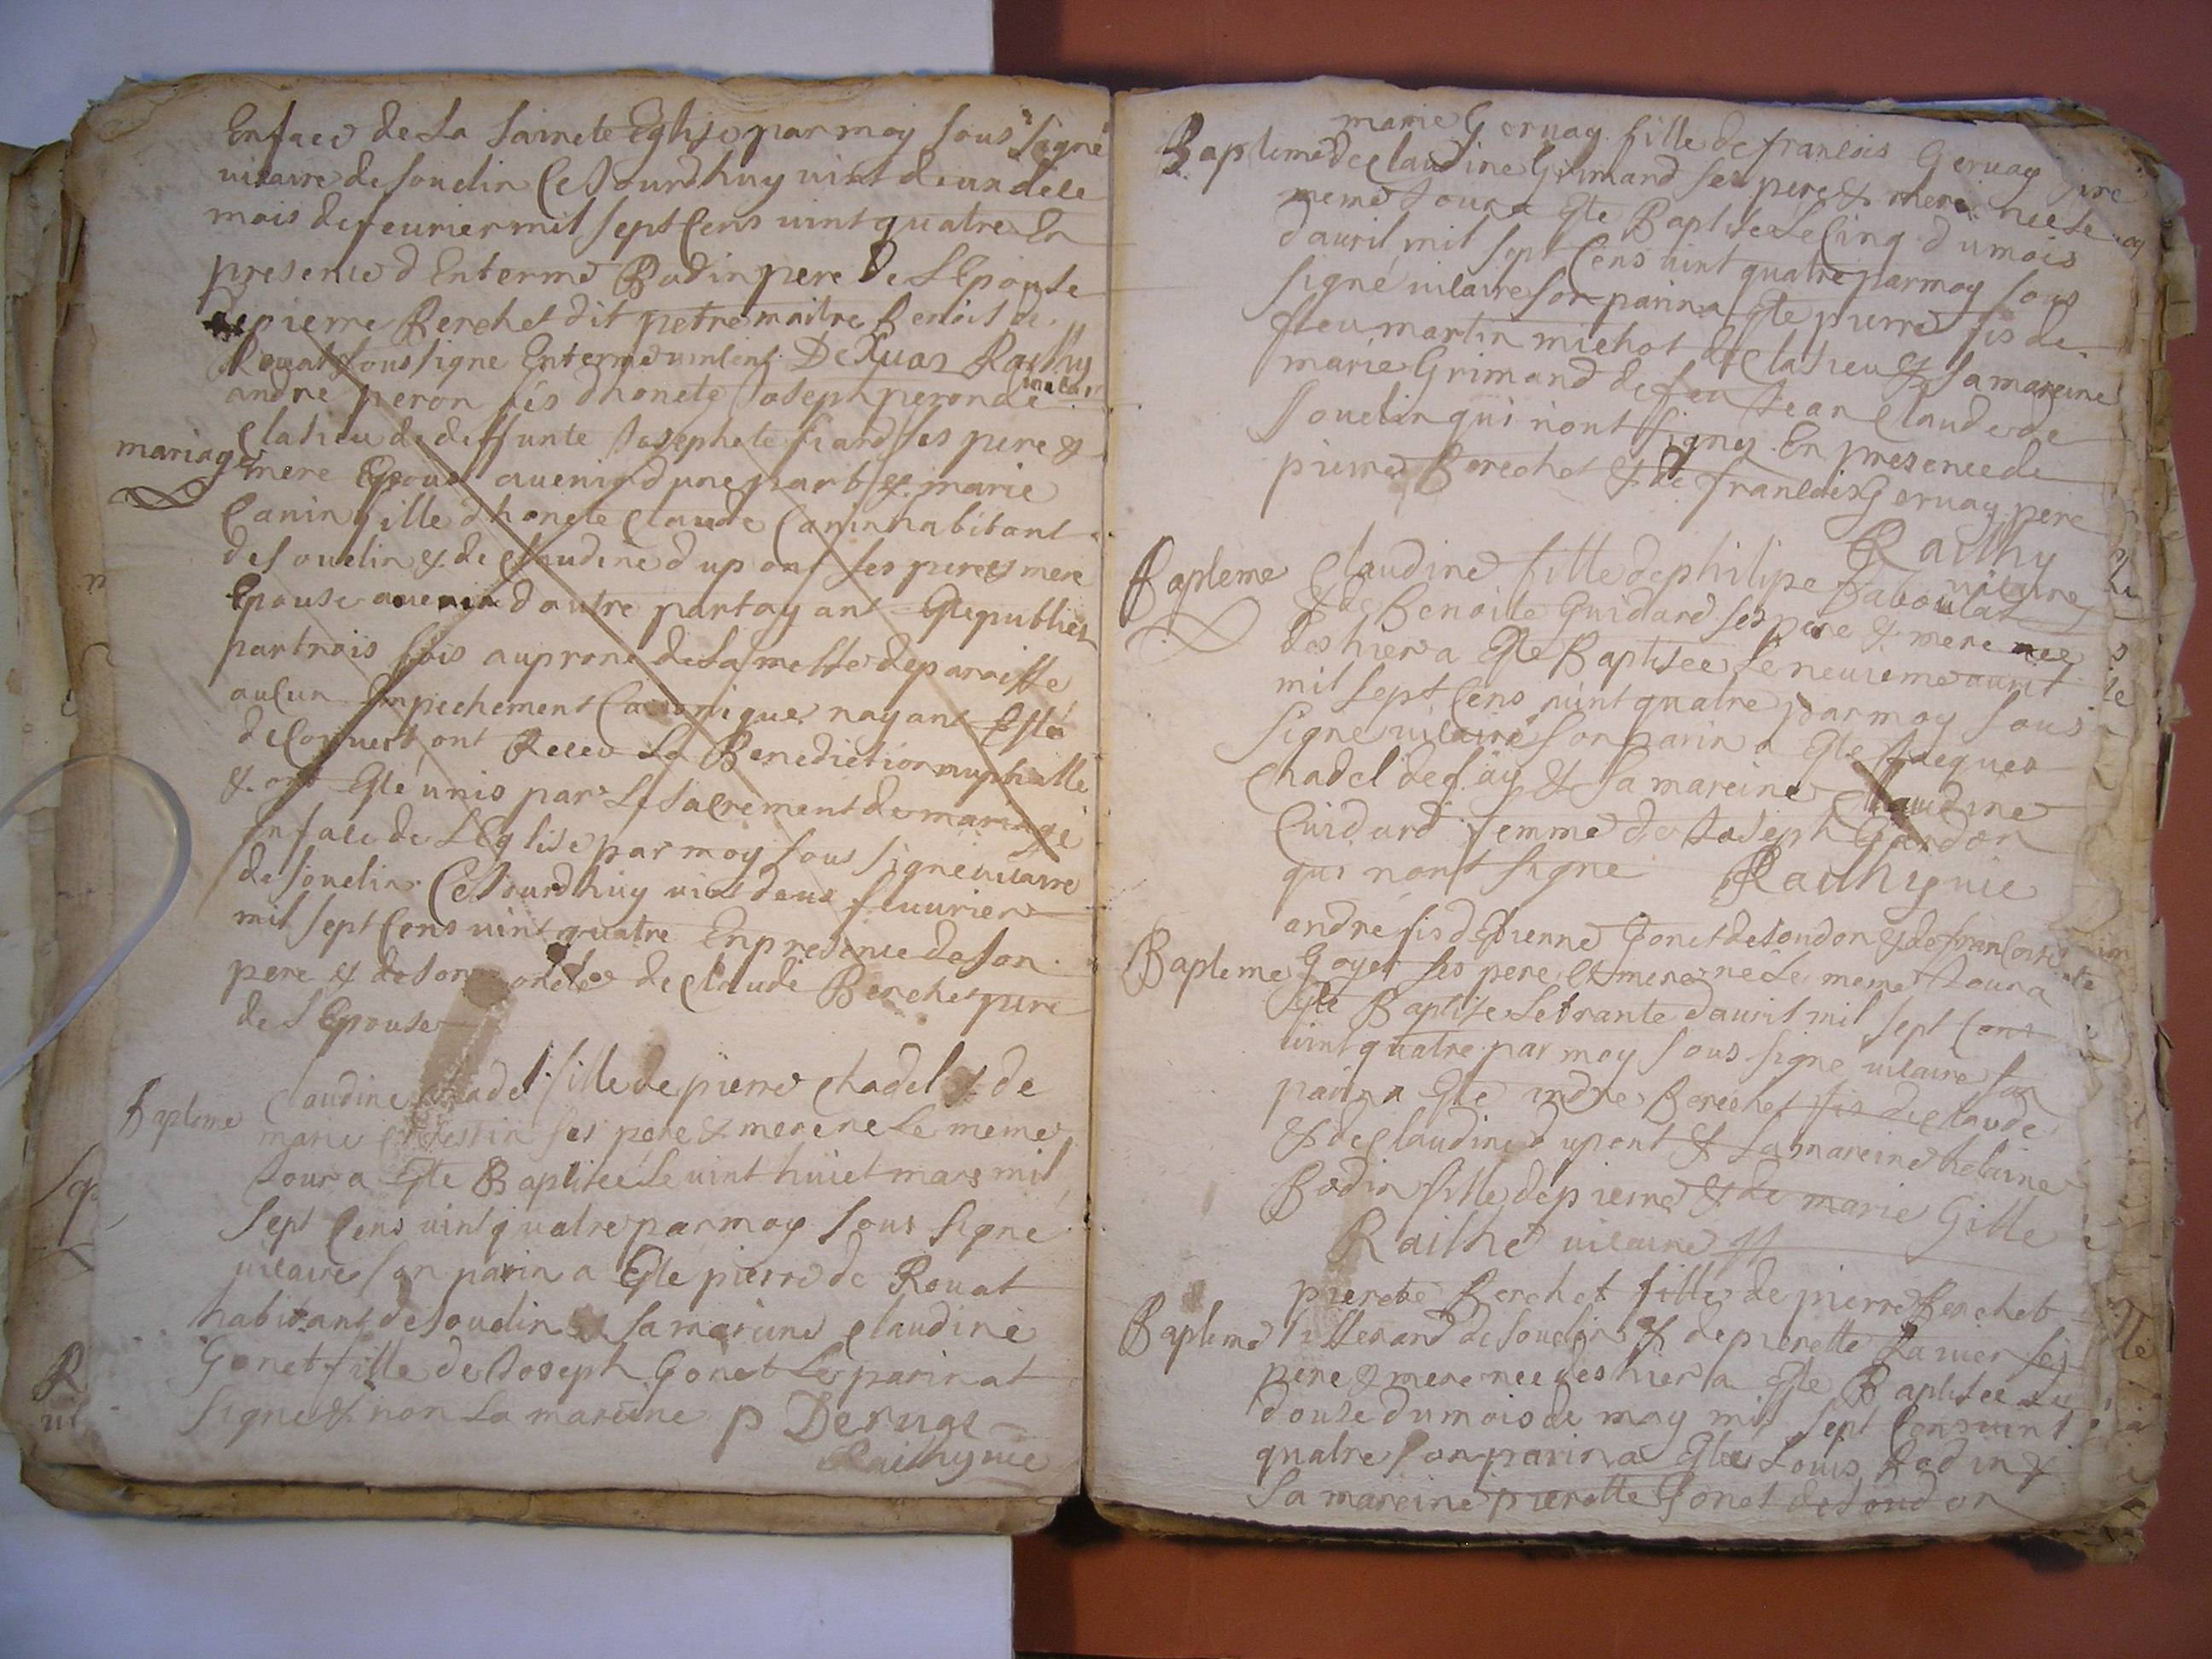 En face de la saincte Eglise par moy sous signé
vicaire de Soudin Ce Jourdhuy vint deux de le
mois de feurier mil sept Cens vint quatre En
presence d Enterme Badin pere de L Epouse
de pierre Berchet dit petremaitre Benoist de
Rouat sous signe Enterme vincent DeRuaz Railhy
andre peron fis dhonete Joseph peron de vicaire
Clatieu de deffunte Josephete fiard ses pere &
mariage
mere Epous auenir dune part & marie
Canin fille dhonete Claude Canin habitant
de souclin & de Claudine dupont ses pere & mere
Epouse auenir dautre part ayant Ete publies
par trois fois au prone de la messe de paroisse
aucun Empechement Canonique nayant Esté
decouuert ont Receu La Benediction nuphalle
& ont Eté unis par Le sacrement de mariage
En face de L Eglise par moy sous signé vicaire
de souclin Ce Jourdhuy vint deux feuurier
mil sept Cens vint quatre En presence de son
pere & de son oncle de Claude Berchet pere
de L Epouse
Bapteme
Claudine Chadel fille de pierre Chadel & de
marie ses pere & mere ne Le meme
Jour a Ete Baptisée Le vint huict mars mil
sept Cens vint quatre par moy sous signé
vicaire son parin a Ete pierre de Rouat
habitant de souclin & sa mareine Claudine
Gonet fille de Joseph Gonet Le parin at
signe & non La mareine p Deruas
Railhy vic
marie Geruay fille de francois Geruay
Bapteme
de Claudine Grimand ses pere & mere nee Le
meme Jour a Ete Baptisée Le Cinq du mois
dauril mil sept Cens vint quatre par moy sous
signé vicaire son parin a Ete pierre fis de
feu martin michot de Clatieu & sa mareine
marie Grimand de feu Jean Claude de
souclin qui nont signez En presence de
pierre Berechet & de francois Geruay pere
Railhy
vicaire
Bapteme
Claudine fille de philipe Baboulat
& de Benoite Guidard ses pere & mere nee
des hier a Ete Baptisee Le neuieme auril
mil sept Cens vint quatre par moy sous
signé vicaire son parin a Ete Jacques
Chadel de fay & sa mareine Claudine
Cuidard femme de Joseph Gardon
qui nont signe Railhy vic
andré fis d Etienne Gonet de soudon & de francoise
Bapteme
Goyet ses pere & mere ne Le meme Jour a
Ete Baptise Le trante dauril mil sept Cens
vint quatre par moy sous signé vicaire son
parin a Ete andre Berechet fis de Claude
& de Claudine dupont & La mareine helaine
Badin fille de pierre & de marie Gille
Railhe vicaire
pierete Berchet fille de pierre Berchet
Bapteme
tisserand de souclin & de pierette Lauier ses
pere & mere nee des hier a Ete Baptisee Le
douse du mois de may mil sept Cens vint
quatre son parin a Ete Louis Badin &
La mareine pierette Gonet de soudon